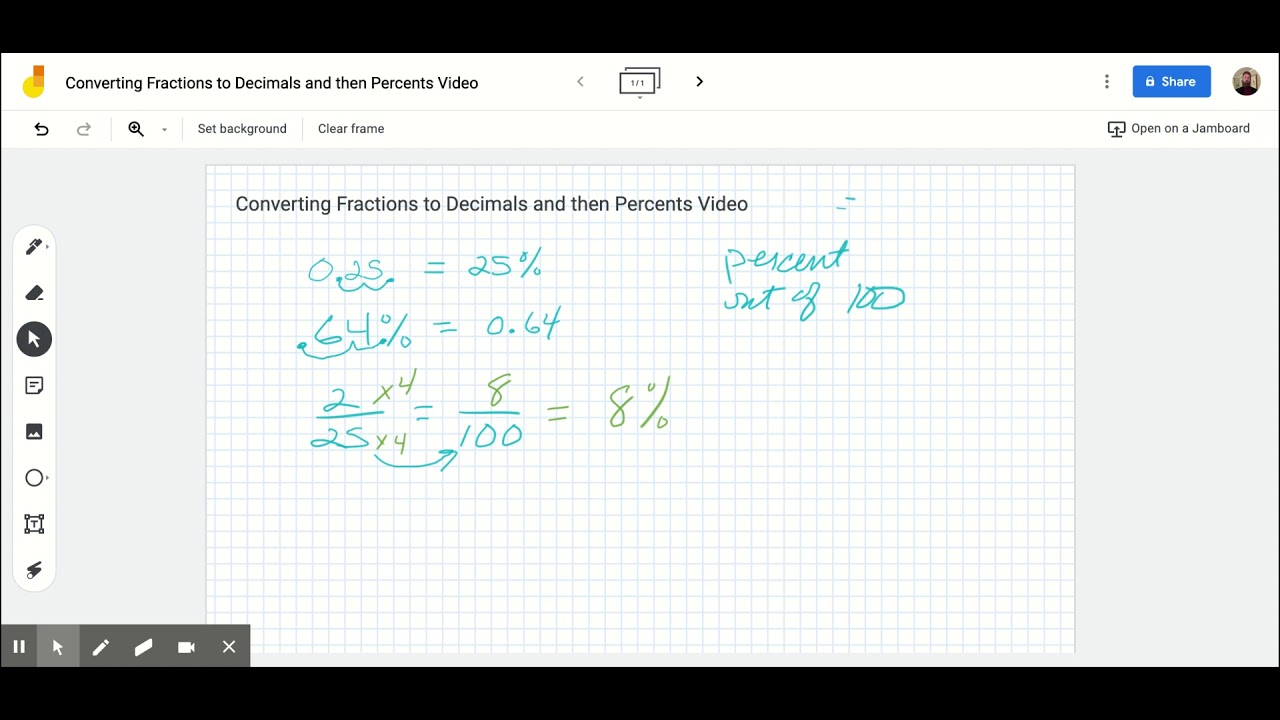 Converting Fractions to Decimals and then Percents Video
1/1
Share
Set background
Clear frame
Open on a Jamboard
Converting Fractions to Decimals and then Percents Video
=
0.25. = 25%
percent
out of 100
.64.% = 0.64
2 x4 = 8 = 8%
25 x4 100
T